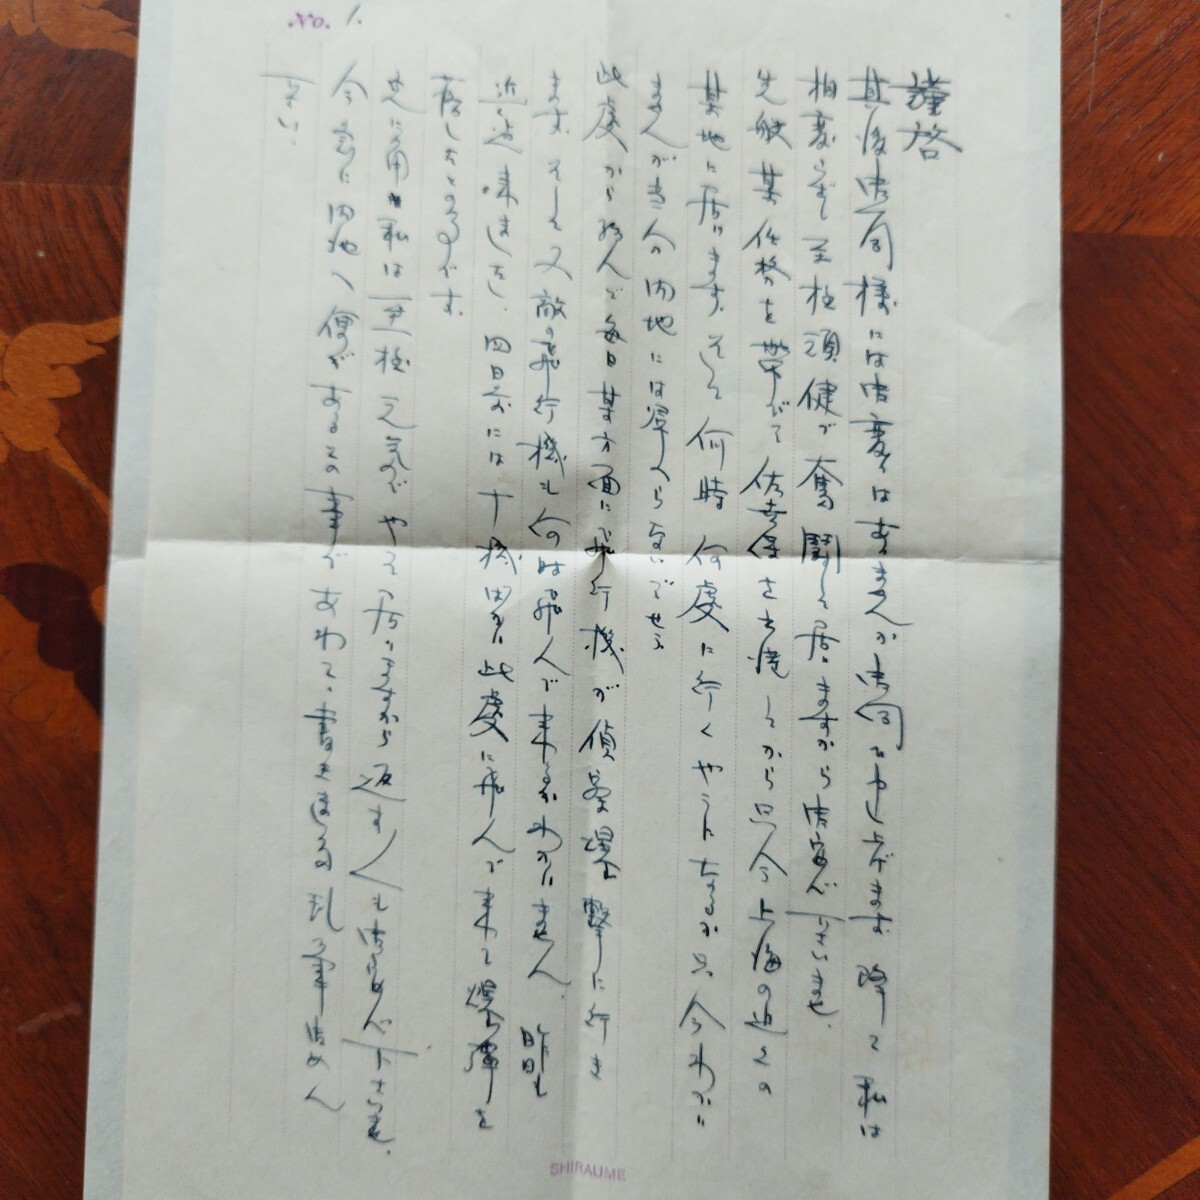 No. 1.
謹啓
其後御一同様には御変りはありませんか御伺ひ申し上げます 降て私は
相変らず至極頑健で奮闘して居りますから御安心下さいませ.
先般某任務を帯びて佐世保を出港してから只今上海の近くの
某地に居ります. そして何時何處に行くやうになるか只今わかり
ませんが当分内地には帰へらないでせう
此處から飛んで毎日某方面に飛行機が偵察爆撃に行き
ます. そして又敵の飛行機も何時飛んで来るかわかりません. 昨日も
近迄来ました. 四日前には十機ばかり此處に飛んで来て爆弾を
落したとの事です.
兎に角私は至極元気でやって居りますから返す〱も御安心下さいませ.
今急に内地へ便があるとの事であわてゝ書きました乱筆御めん
下さい.
SHIRAUME